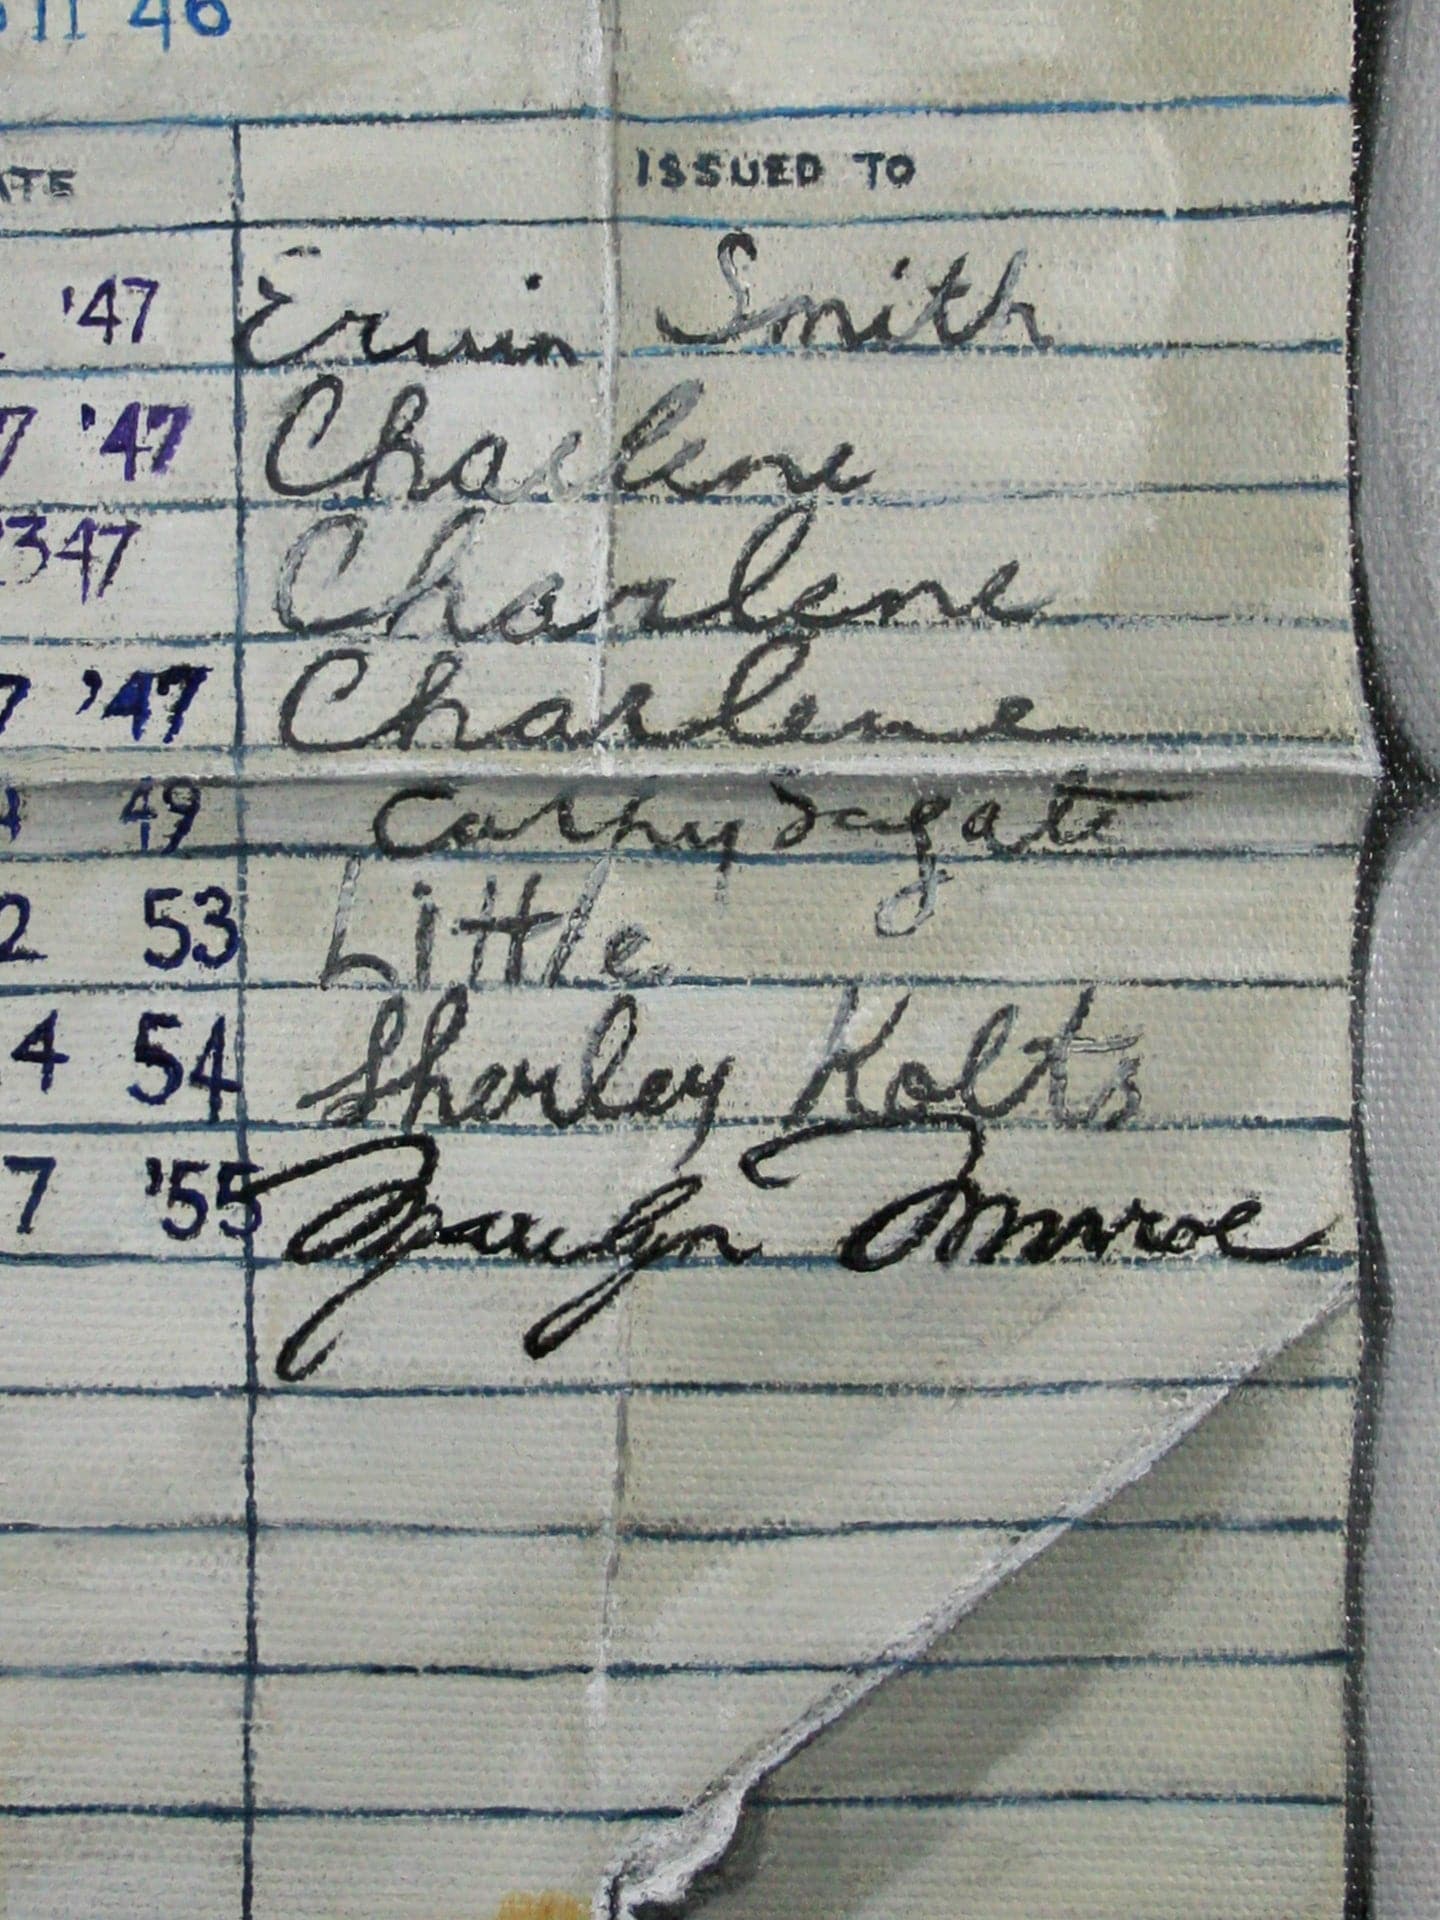 46
ISSUED TO
'47 Ervin Smith
7 '47 Charlene
2347 Charlene
7 '47 Charlene
4 49 Cathy
2 53 Little
4 54 Shorley Kolts
7 '55 Marilyn Monroe